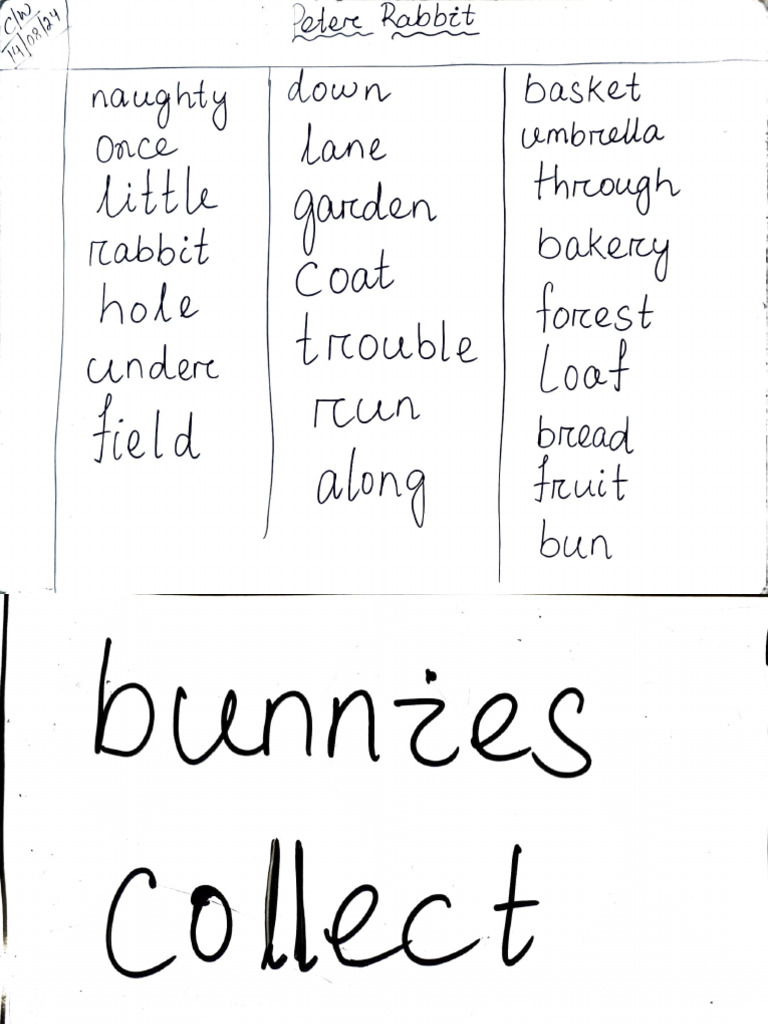 C/W
14/08/24
Peter Rabbit
naughty
once
little
rabbit
hole
under
field
down
lane
garden
coat
trouble
run
along
basket
umbrella
through
bakery
forest
loaf
bread
fruit
bun
bunnies
collect